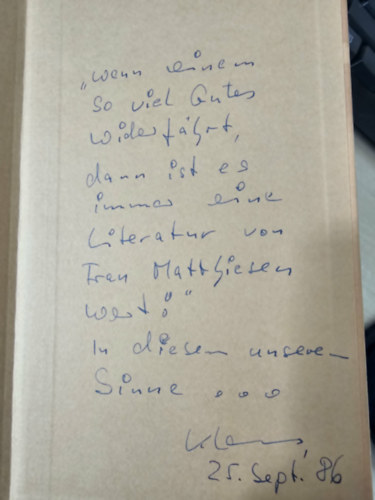 „wenn einem
so viel Gutes
widerfährt,
dann ist es
immer eine
Literatur von
Frau Matthiesen
wert!"
In diesem unseren
Sinne ...
Klaus
25. Sept. '86